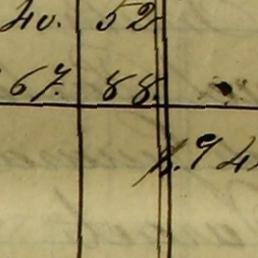 40. 52
67. 88.
p. 94